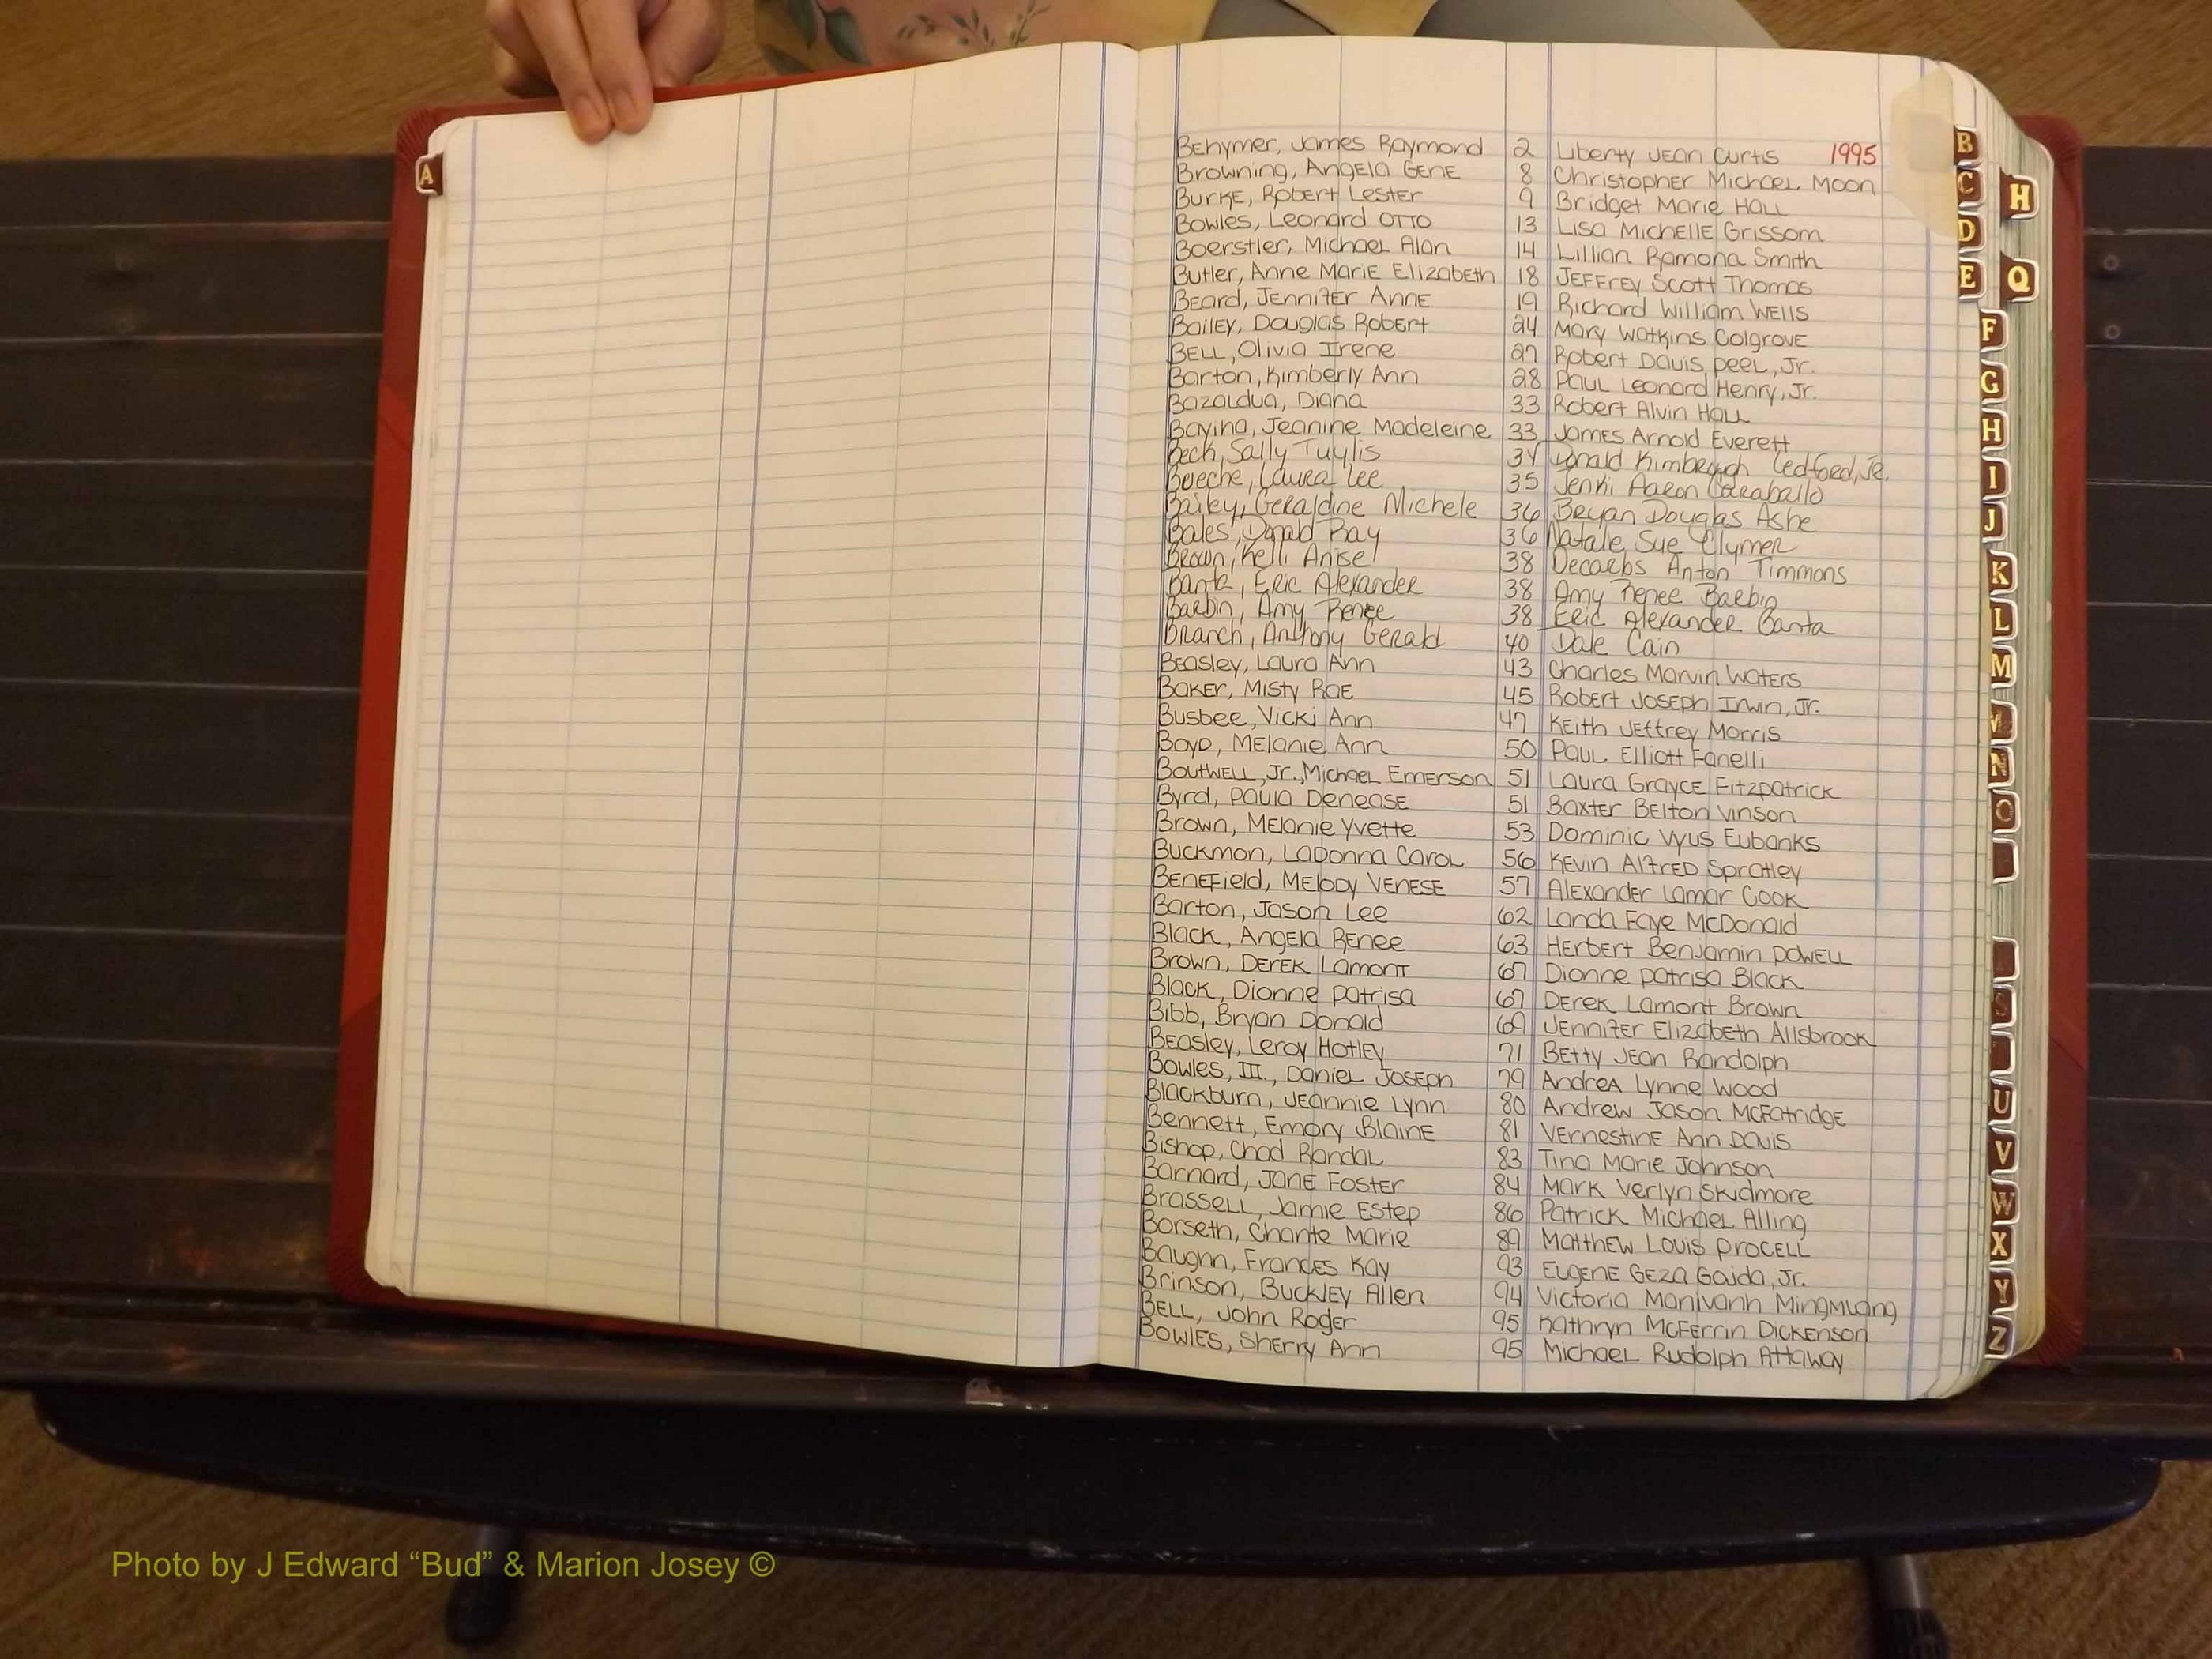 Behymer, James Raymond 2 Liberty Jean Curtis 1995
Browning, Angela Gene 8 Christopher Michael Moon
Burke, Robert Lester 9 Bridget Marie Hall
Bowles, Leonard Otto 13 Lisa Michelle Grissom
Boerstler, Michael Alan 14 Lillian Ramona Smith
Butler, Anne Marie Elizabeth 18 Jeffrey Scott Thomas
Beard, Jennifer Anne 19 Richard William Wells
Bailey, Douglas Robert 24 Mary Watkins Colgrove
Bell, Olivia Irene 27 Robert Davis Peel, Jr.
Barton, Kimberly Ann 28 Paul Leonard Henry, Jr.
Bazaldua, Diana 33 Robert Alvin Hall
Bayina, Jeanine Madeleine 33 James Arnold Everett
Beck, Sally Tuylis 34 Donald Kimbrough Ledford, Jr.
Bueche, Laura Lee 35 Jenki Aaron Caraballo
Bailey, Geraldine Michele 36 Bryan Douglas Ashe
Bales, Donald Ray 36 Natale Sue Clymer
Brown, Kelli Anise 38 Decarbs Anton Timmons
Banta, Eric Alexander 38 Amy Renee Barbin
Barbin, Amy Renee 38 Eric Alexander Banta
Branch, Anthony Gerald 40 Dale Cain
Beasley, Laura Ann 43 Charles Marvin Waters
Baker, Misty Rae 45 Robert Joseph Irwin, Jr.
Busbee, Vicki Ann 47 Keith Jeffrey Morris
Boyd, Melanie Ann 50 Paul Elliott Fanelli
Boutwell, Jr., Michael Emerson 51 Laura Grayce Fitzpatrick
Byrd, Paula Denease 51 Baxter Belton Vinson
Brown, Melanie Yvette 53 Dominic Vyus Eubanks
Buckmon, LaDonna Carol 56 Kevin Alfred Spratley
Benefield, Melody Venese 57 Alexander Lamar Cook
Barton, Jason Lee 62 Landa Faye McDonald
Black, Angela Renee 63 Herbert Benjamin Powell
Brown, Derek Lamont 67 Dionne Patrisa Black
Black, Dionne Patrisa 67 Derek Lamont Brown
Bibb, Bryan Donald 69 Jennifer Elizabeth Allsbrook
Beasley, Leroy Hotley 71 Betty Jean Randolph
Bowles, III., Daniel Joseph 79 Andrea Lynne Wood
Blackburn, Jeannie Lynn 80 Andrew Jason McFatridge
Bennett, Emory Blaine 81 Vernestine Ann Davis
Bishop, Chad Randal 83 Tina Marie Johnson
Barnard, Jane Foster 84 Mark Verlyn Skidmore
Brassell, Jamie Estep 86 Patrick Michael Alling
Borseth, Chante Marie 89 Matthew Louis Procell
Baughn, Frances Kay 93 Eugene Geza Gajda, Jr.
Brinson, Buckley Allen 94 Victoria Manivanh Mingmuang
Bell, John Roger 95 Kathryn McFerrin Dickenson
Bowles, Sherry Ann 95 Michael Rudolph Attaway
A
B
C
H
D
E
Q
F
G
H
I
J
K
L
M
N
O
S
U
V
W
X
Y
Z
Photo by J Edward “Bud” & Marion Josey ©